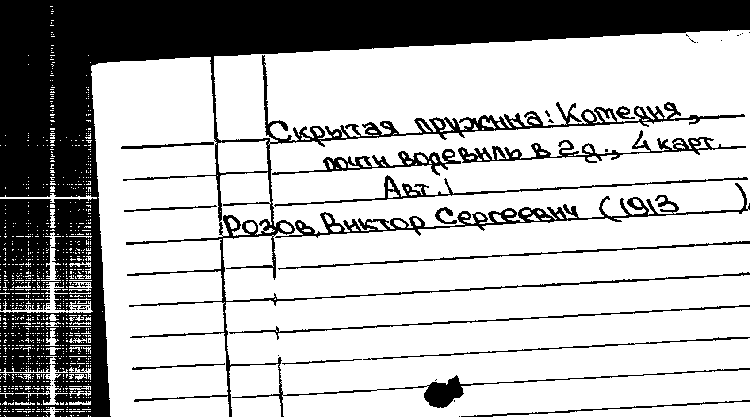 Скрытая пружина: Комедия,
почти водевиль в 2 д., 4 карт.
Авт.:
Розов, Виктор Сергеевич (1913 )